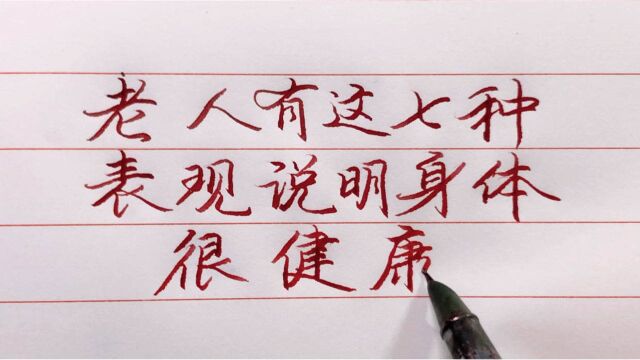 老人有这七种
表观说明身体
很健康